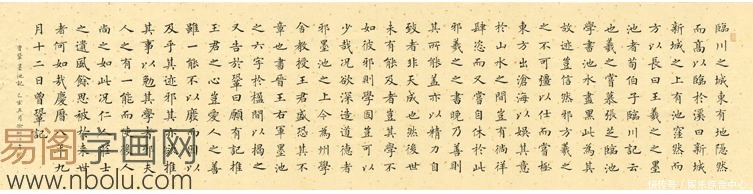 臨川之城東有地隱然
而高以臨於溪曰新城
新城之上有池窪然而
方以長曰王羲之之墨
池者荀伯子臨川記云
也羲之嘗慕張芝臨池
學書池水盡黑此為其
故迹豈信然邪方羲之
之不可彊以仕而嘗極
東方出滄海以娛其意
於山水之間豈有徜徉
肆恣而又嘗自休於此
邪羲之之書晚乃善則
其所能蓋亦以精力自
致者非天成也然後世
未有能及者豈其學不
如彼邪則學固豈可以
少哉況欲深造道德者
邪墨池之上今為州學
舍教授王君盛恐其不
章也書晉王右軍墨池
之六字於楹間以揭之
又告於鞏曰願有記推
王君之心豈愛人之善
雖一能不以廢而因以
及乎其迹邪其亦欲推
其事以勉其學者邪夫
人之有一能而使後人
尚之如此況仁人莊士
之遺風餘思被於來世
者何如哉慶曆八年九
月十二日曾鞏記
曾鞏墨池記 乙亥五月
易阁字画网
www.nbolu.com